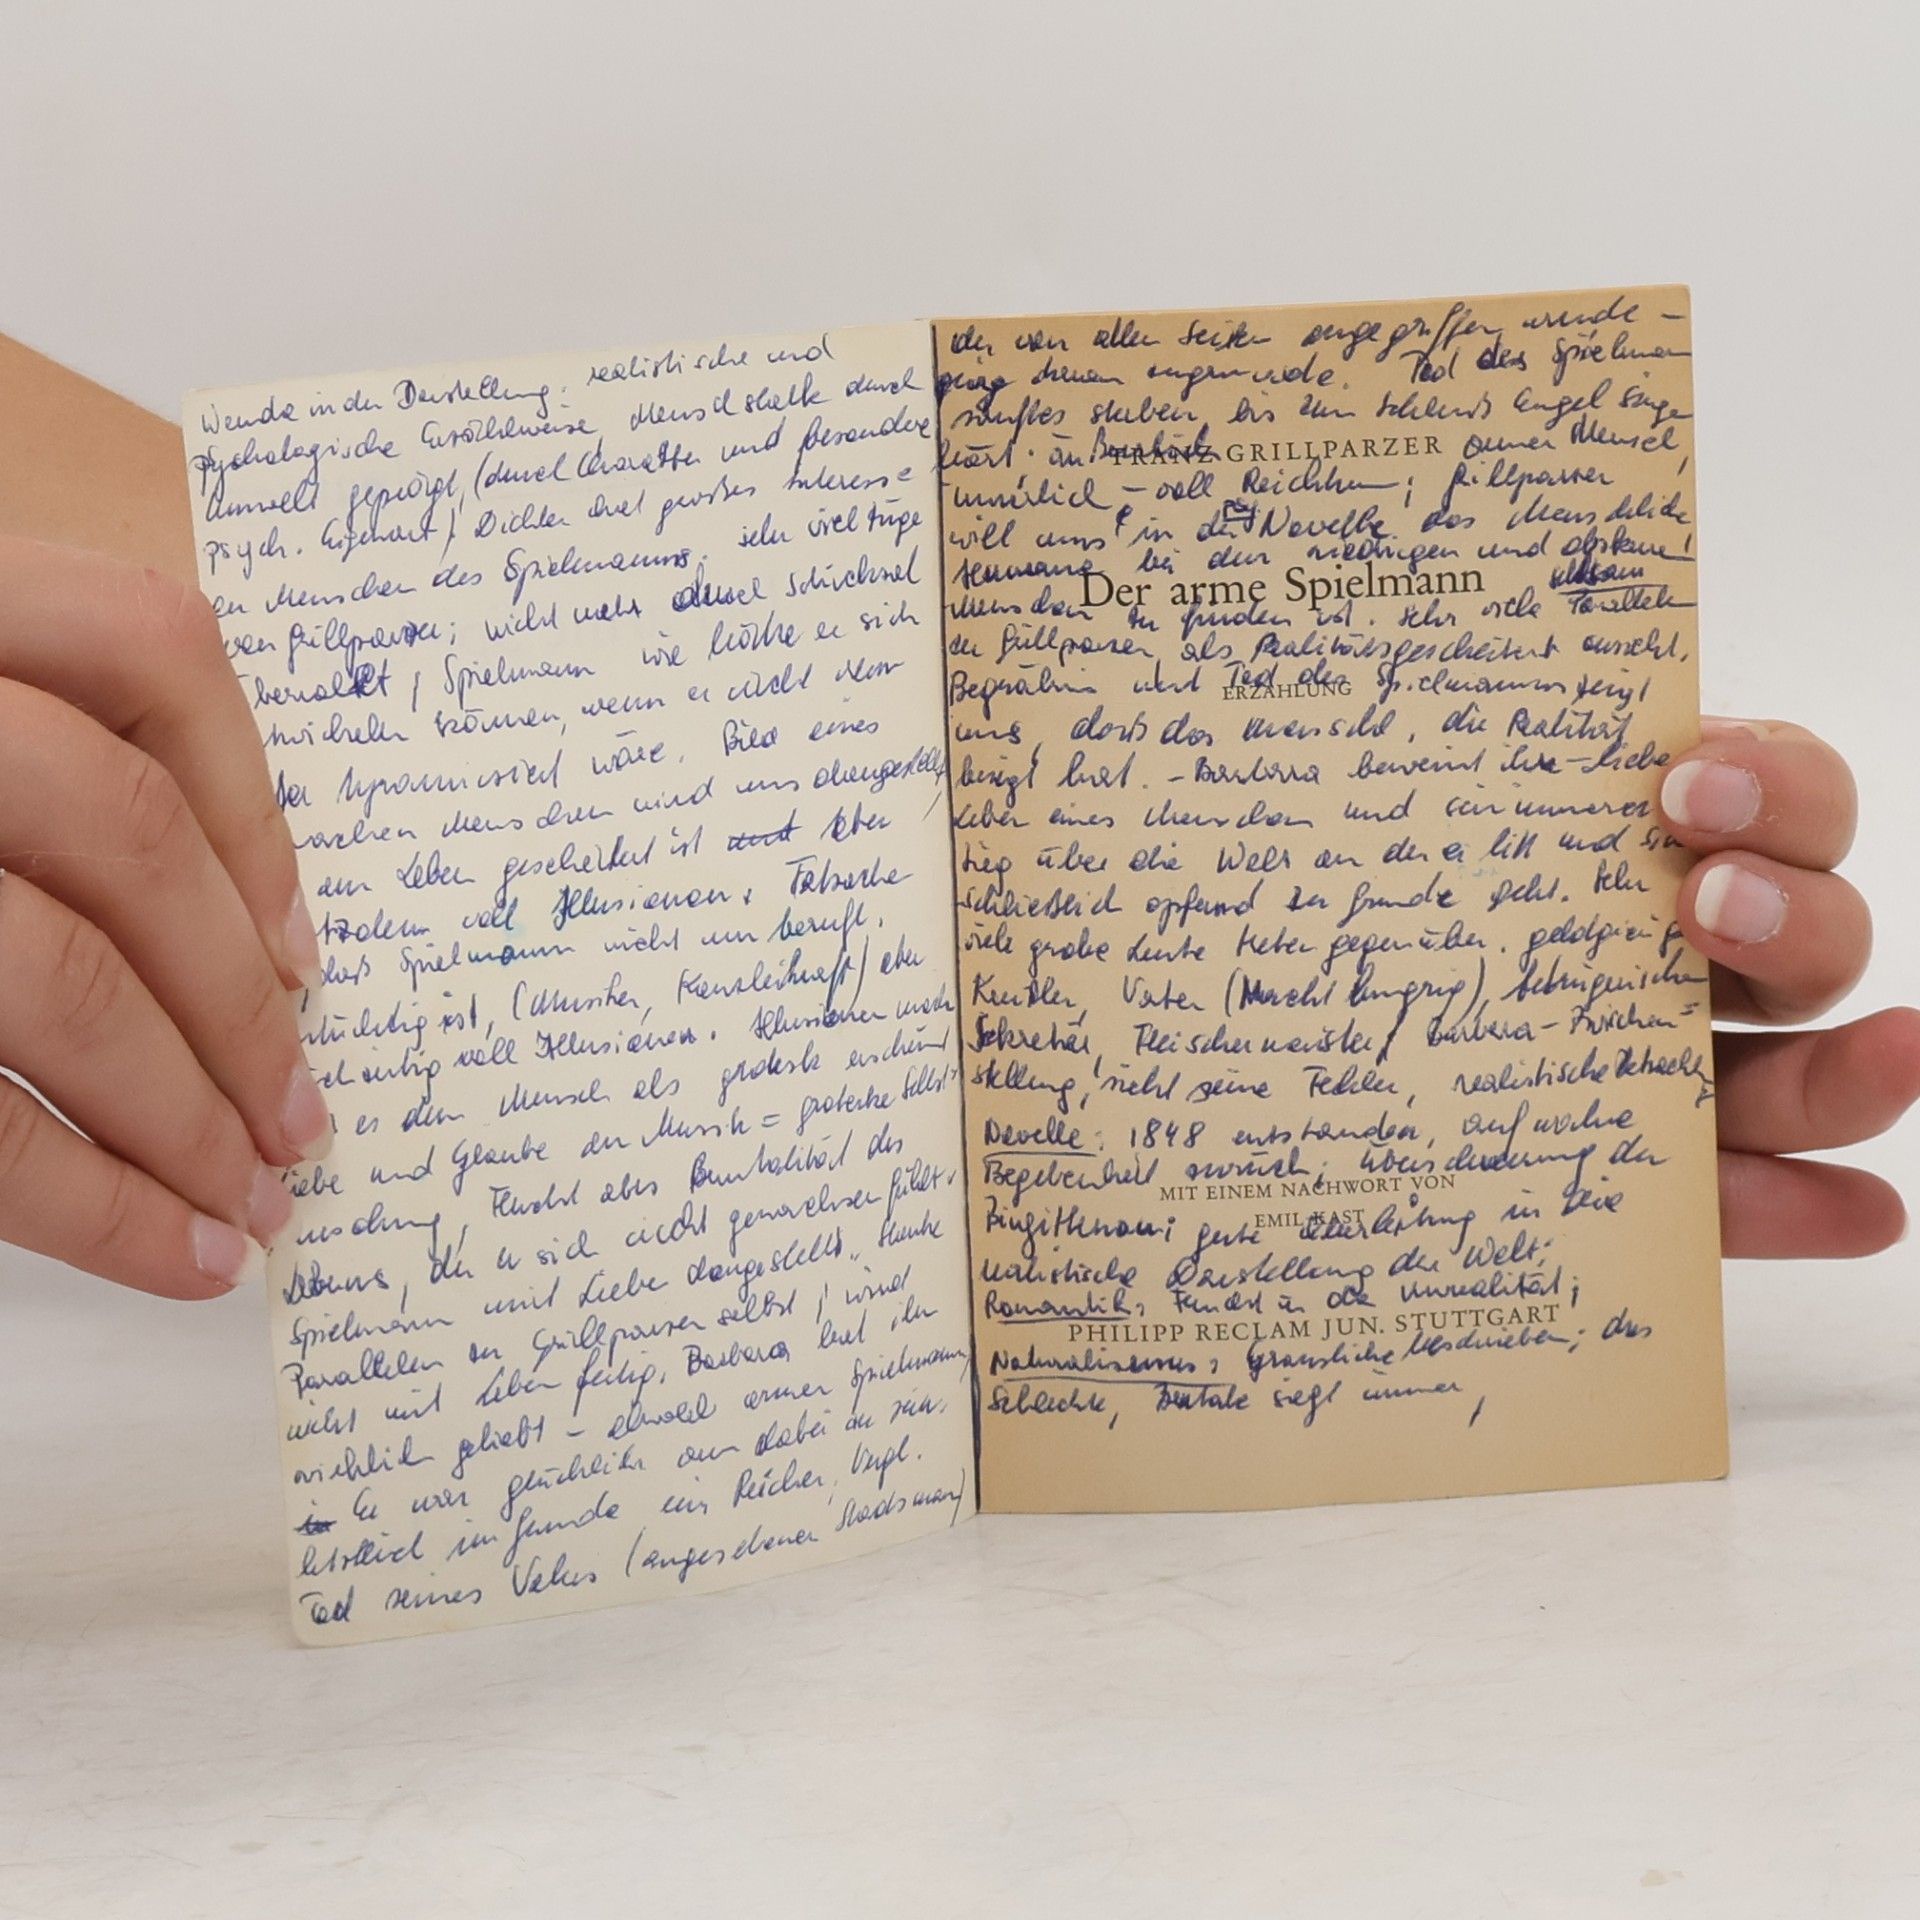 Wende in der Darstellung: realistische und
psychologische Erzählweise, Menschstatk durch
Umwelt geprägt, (durch Charakter und besondere
psych. Eigenart) Dichter hat großes Interesse
Menschen des Spielmanns; sehr viel Züge
von Grillparzer; nicht mehr durch Schicksal
Spielmann wie hätte er sich
können, wenn er nicht vom
tyrannisiert wäre. Bild eines
Menschen wird uns dargestellt,
am Leben gescheitert ist und aber
voll Illusionen. Tatsache
daß Spielmann nicht nur beruf.
ist, (Musiker, Kanzleikraft) aber
voll Illusionen. Illusionen
es dem Mensch als grotesk erscheint
und Glaube an Musik = groteske Selbst=
Flucht Brutalität des
Lebens, der er sich nicht gewachsen fühlt.
Spielmann mit Liebe dargestellt
Parallelen zu Grillparzer selbst, wird
nicht mit Leben fertig, Barbara hat ihn
wirklich geliebt - obwohl armer Spielmann,
in Er war glücklich dabei
letztlich im Grunde ein Reicher, Vergl.
Tod seines Vaters (angesehener Stadsmann)
der von allen Seiten angegriffen wurde -
ging daran zugrunde. Tod des Spielmann
sanftes sterben, bis zum Schluß Engel singen
hört. armer Mensch,
FRANZ GRILLPARZER
innerlich - voll Reichtum; Grillparzer
will uns in der Novelle das Menschliche
bei den niedrigen und
Der arme Spielmann
seltsam
Menschen zu finden ist. Sehr viele Parallelen
zu Grillparzer, als Realitätsgescheitert ansieht.
Begräbnis und Tod des Spielmanns zeigt
ERZÄHLUNG
uns, daß das Menschl, die Realität
besiegt hat. - Barbara beweint ihre Liebe
Leben eines Menschen und sein innerer
Sieg über die Welt an der er litt und
schließlich opfernd zu Grunde geht. Sehr
viele grobe Leute stehen gegenüber. geldgierige
Kanzler, Vater (Macht hungrig), betrügerischer
Sekretär, Fleischermeister, Barbara - Zwischen=
stellung, sieht seine Fehler, realistische
Novelle: 1848 entstanden, auf wahre
Begebenheit zurück; Überschwemmung der
MIT EINEM NACHWORT VON
EMIL KAST
Brigittenau; gute Überleitung in die
realistische Darstellung der Welt;
Romantik: Flucht in die Unrealität;
PHILIPP RECLAM JUN. STUTTGART
Naturalismus: Grausliche beschrieben; das
Schlechte, Brutale siegt immer,